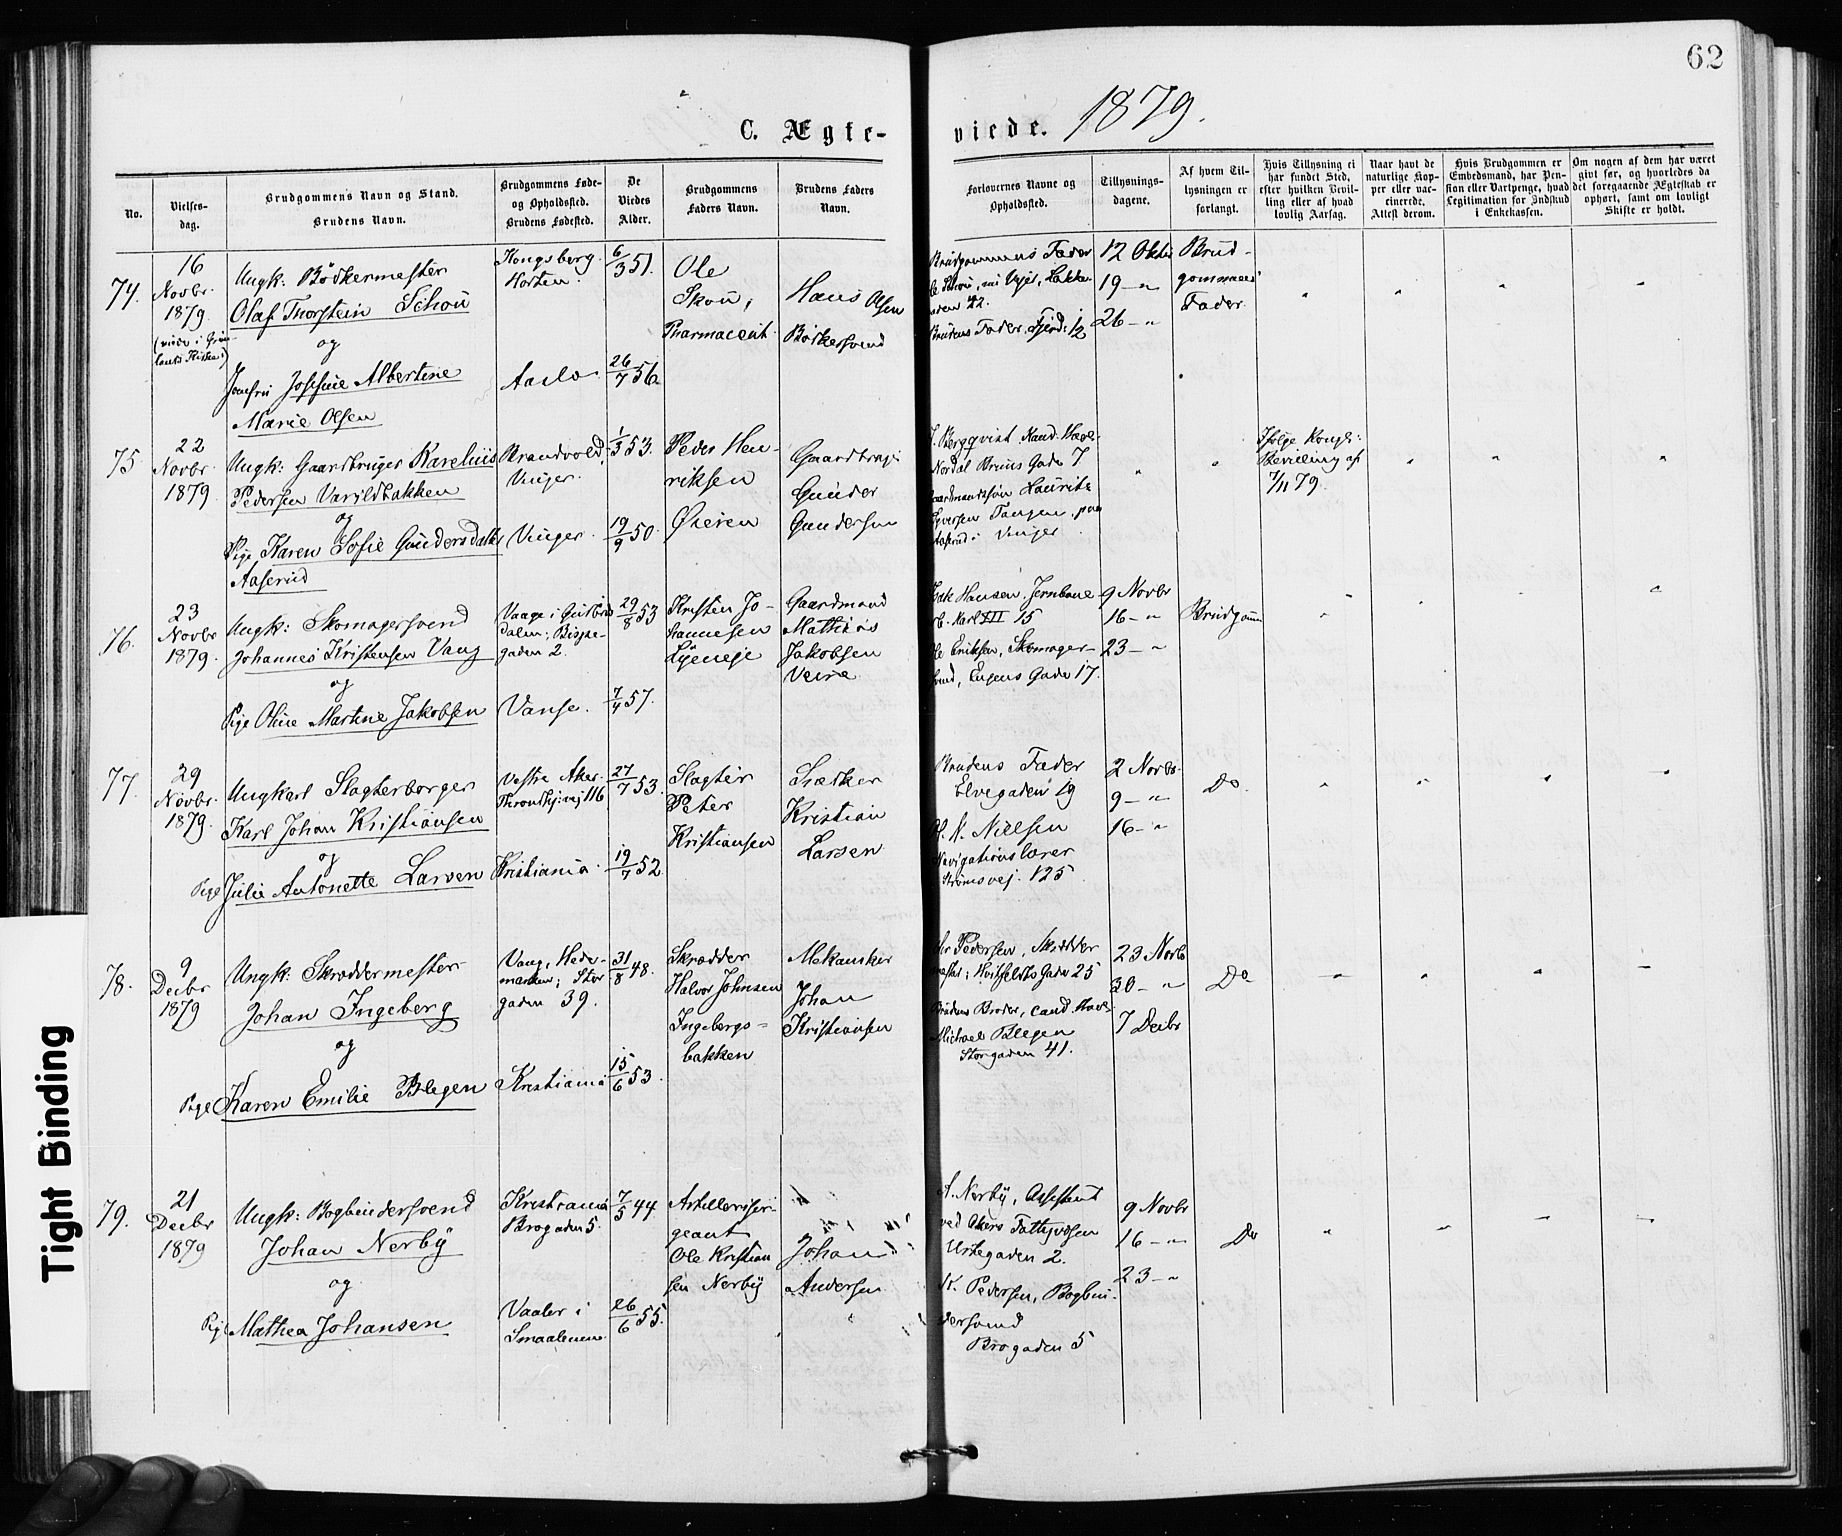 62
C. Ægte-
viede. 1879.
No.
Vielses-
dag.
Brudgommens Navn og Stand.
Brudens Navn.
Brudgommens Føde-
og Opholdssted.
Brudens Fødested.
De
Viedes
Alder.
Brudgommens
Faders Navn.
Brudens Faders
Navn.
Forlovernes Navne og
Opholdssted.
Tillysnings-
dagene.
Af hvem Til-
lysningen er
forlangt.
Hvis Tillysning ei
har fundet Sted,
efter hvilken Bevil-
ling eller af hvad
lovlig Aarsag.
Naar havt de
naturlige Kop-
per eller vac-
cinerede.
Attest derom.
Hvis Brudgommen er
Embedsmand, har Pen-
sion eller Vartpenge, hvad
Legitimation for Indskud
i Enkekassen.
Om nogen af dem har været
gift før, og hvorledes da
det foregaaende Ægteskab er
ophørt, samt om lovligt
Skifte er holdt.
74.
16
Novbr.
1879.
Ungk: Bödkermester
Olaf Thorstein Schou
og
Jomfru Josefine Albertine
Marie Olsen
Kongsberg.
Horten.
Aaslo.
6/3 51.
26/7 56
Ole
Skou,
Pharmaceut.
Hans Olsen
Bödkersvend
Brudgommens Fader
Brudens Fader
12 Oktbr
19 – "
26 – "
Brud-
gommens
Fader
75
22
Novbr.
1879.
Ungk: Gaardbruger Karelius
Pedersen Varildbakken
og
Pige Karen Sofie Gundersdatter
Aaserud
Brandvold,
Vinger.
Vinger.
1/3 53.
19/9 50.
Peder Hen-
riksen
Øieren
Gaardbruger
Gunder
Gundersen
Bergqvist
Nordal Bruns Gade 7
Gaardmandssøn Lauritz
Syversen Tangen, paa
Aaserud i Vinger
Ifølge Kongl:
Bevilling af
7/11 79.
76.
23
Novbr
1879.
Ungk: Skomagersvend
Johannes Kristensen Vang
og
Pige Oline Martine Jakobsen
Vaage i Gudbrands
dalen; Bispe-
gaden 2.
Vanse.
29/8 53
7/4 57.
Kristen Jo-
hannesen
Gaardmand
Mathias
Jakobsen
Hansen, Jernbane
Karl XII 15
Ole Eriksen, Skomager-
svend, Eugens Gade 17.
9 Novbr
16 – "
23 – "
Brudgom
77.
29
Novbr.
1879.
Ungkarl Slagterborger
Karl Johan Kristiansen
og
Pige Julie Antonette Larsen
Vestre Aker
Throndhj:vej 116
Kristiania.
27/7 53.
19/7 52
Slagter
Peter
Kristiansen
Snedker
Kristian
Larsen
Brudens Fader
Elvegaden 19
Nielsen
Navigationslærer
Strømsvej. 125
2 Novbr.
9 – "
16 – "
Do.
78.
9
Decbr
1879
Ungk: Skræddermester
Johan Ingeberg
og
Pige Karen Emilie Blegen
Vang, Hede-
marken; Stor
gaden 39.
Kristiania
31/8 48.
15/6 53.
Skrædder
Halvor Johnsen
Ingebergs-
bakken
Mekaniker
Johan
Kristiansen
Pedersen, Skrædder
mester; Hvitfeldts Gade 25
Brudens Broder, cand.
Michael Blegen
Storgaden 41.
23 Novb
30 – "
7 Decbr
Do
79.
21
Decbr
1879
Ungk: Bogbindersvend
Johan Nerby
og
Pige Mathea Johansen
Kristiania
Brogaden 5.
Vaaler i
Smaalenene.
7/5 44.
26/6 55.
Artelleriser-
geant
Ole Kristian
sen Nerby
Johan
Andersen
A. Nerby, Assistent
ved Akers Fattigvæsen
Urtegaden 2.
Pedersen, Bogbin-
dersvend
Brogaden 5
9 Novbr
16 – "
23 – "
Do
Tight Binding